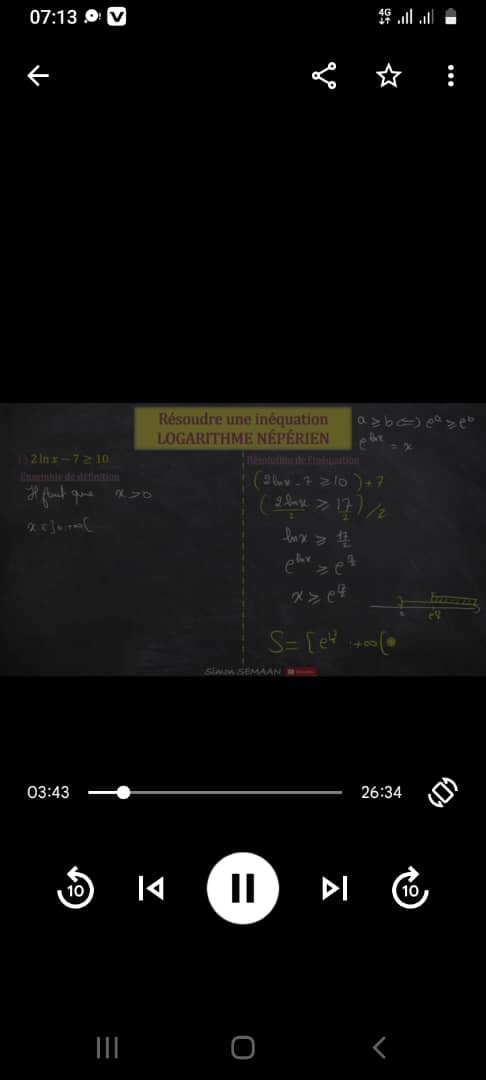 07:13
4G
Résoudre une inéquation
LOGARITHME NÉPÉRIEN
a ≥ b ⇔ e^a ≥ e^b
e^{ln x} = x
1) 2 ln x − 7 ≥ 10
Ensemble de définition
Il faut que x > 0
x ∈ ]0, +∞[
Résolution de l'inéquation
(2 ln x − 7 ≥ 10) + 7
(2 ln x / 2 ≥ 17 / 2) / 2
ln x ≥ 17/2
e^{ln x} ≥ e^{17/2}
x ≥ e^{17/2}
S = [e^{17/2}, +∞[
Simon SEMAAN
03:43
26:34
10
10